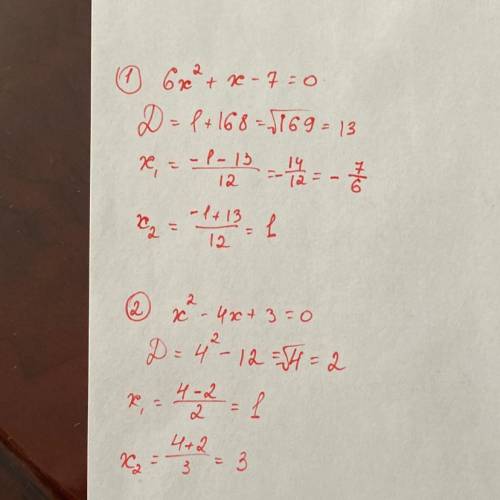 ① 6x² + x - 7 = 0
D = 1 + 168 = √169 = 13
x₁ = (-1 - 13)/12 = -14/12 = -7/6
x₂ = (-1 + 13)/12 = 1
② x² - 4x + 3 = 0
D = 4² - 12 = √4 = 2
x₁ = (4 - 2)/2 = 1
x₂ = (4 + 2)/3 = 3